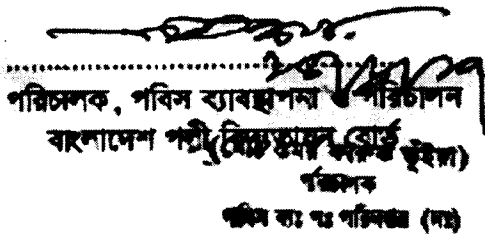 পরিচালক, পবিস ব্যাবস্থাপনা ও পরিচালন
বাংলাদেশ পল্লী বিদ্যুতায়ন বোর্ড
ভূঁইয়া)
পরিচালক
পবিস ব্যঃ পঃ পরিদপ্তর (দঃ)